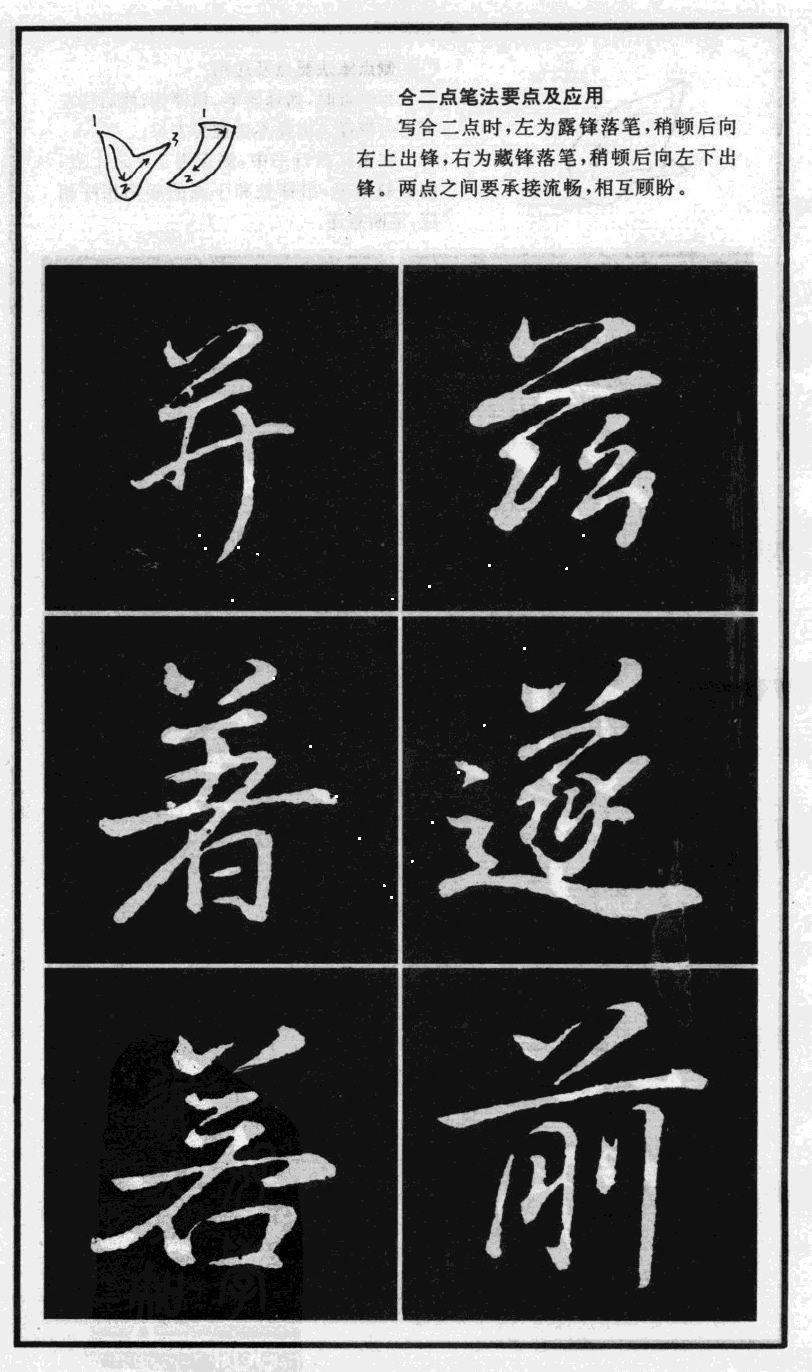 合二点笔法要点及应用
写合二点时，左为露锋落笔，稍顿后向
右上出锋，右为藏锋落笔，稍顿后向左下出
锋。两点之间要承接流畅，相互顾盼。
1 2 3 1 2
并 兹
著 遂
若 前